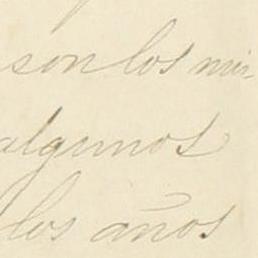 son los mu
algunos
los años